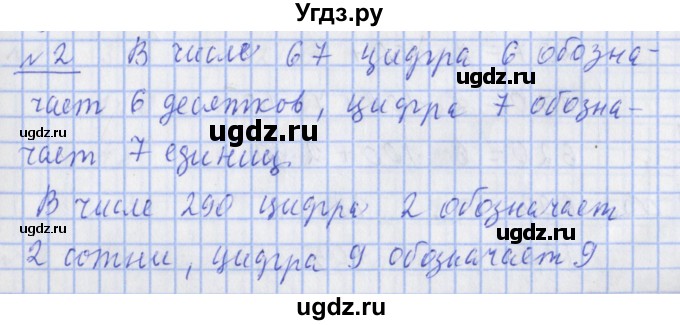 Угдз.ру
№2 В числе 67 цифра 6 обозна-
чает 6 десятков, цифра 7 обозна-
чает 7 единиц.
В числе 290 цифра 2 обозначает
2 сотни, цифра 9 обозначает 9
ugdz.ru
ugdz.ru
ugdz.ru
ugdz.ru
ugdz.ru
ugdz.ru
ugdz.ru